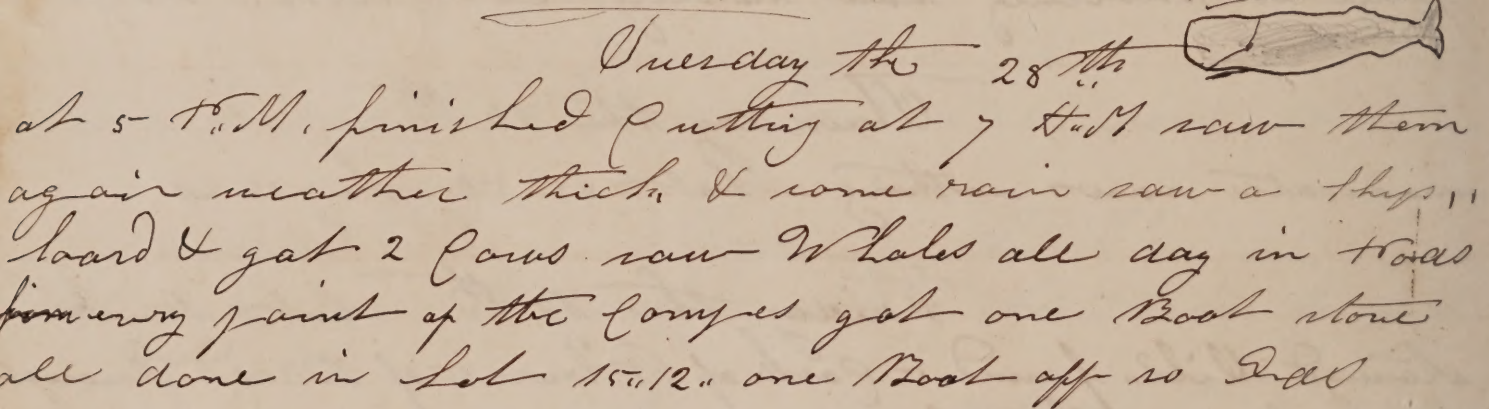 Tuesday the 28th
at 5 P,,M, finished Cutting at 7 A,,M saw them
again weather thick & some rain saw a Ship,,
loard & got 2 Cows saw Whales all day in Pods
from every point of the Compes got one Boat stove
all done in Lat 15,,12,, one Boat off so Ends